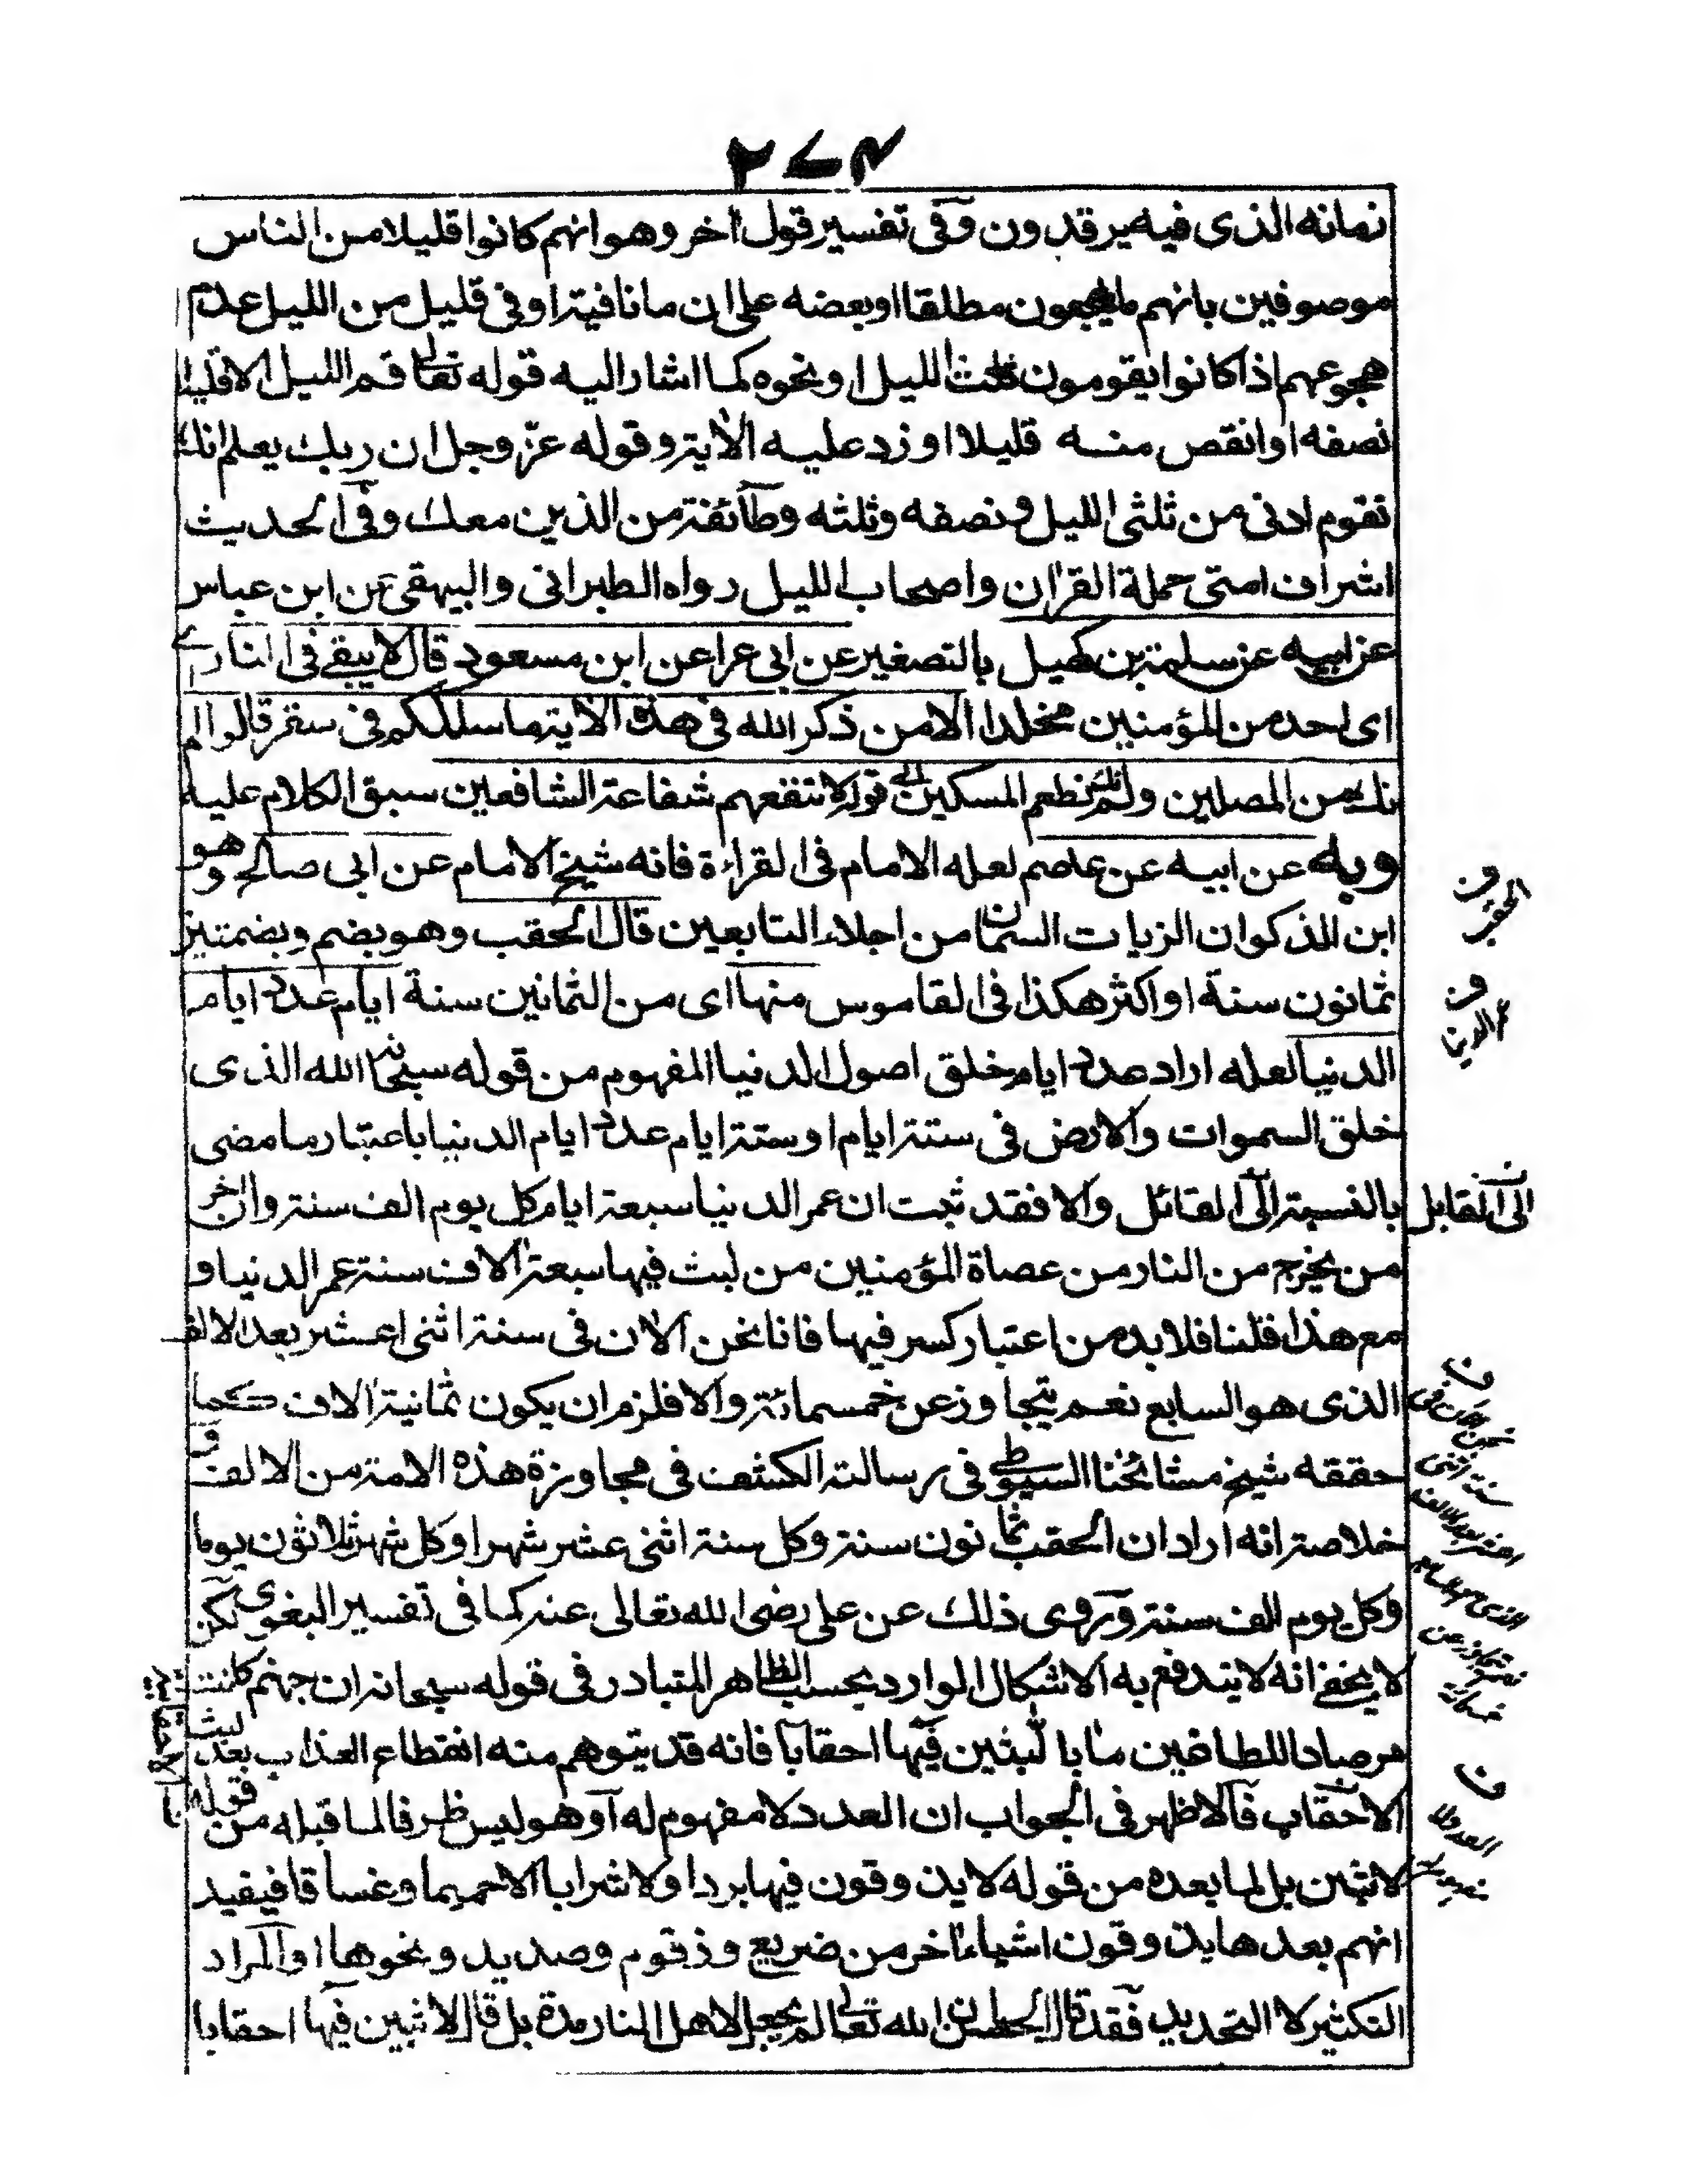 ٢٧٤
زمانه الذى فيه يرقدون وفى تفسير قول اخر وهو انهم كانوا قليلا من الناس
موصوفين بانهم ما يهجعون مطلقا او بعضه على ان ما نافية او فى قليل من الليل عدم
هجوعهم اذا كانوا يقومون ثلث الليل او نحوه كما اشار اليه قوله تعالى قم الليل الا قليلا
نصفه او انقص منه قليلا او زد عليه الاية وقوله عز وجل ان ربك يعلم انك
تقوم ادنى من ثلثى الليل ونصفه وثلثه وطآئفة من الذين معك وفى الحديث
اشراف امتى حملة القرآن واصحاب الليل رواه الطبرانى والبيهقى عن ابن عباس
عن ابيه عن سلمة بن كهيل بالتصغير عن ابى عرا عن ابن مسعود قال لا يبقى فى النار
اى احد من المؤمنين مخلدا الا من ذكر الله فى هذه الاية ما سلككم فى سقر قالوا لم
نك من المصلين ولم نك نطعم المسكين الى قوله لا تنفعهم شفاعة الشافعين سبق الكلام عليه
وبه عن ابيه عن عاصم لعله الامام فى القراءة فانه شيخ الامام عن ابى صالح وهو
ابن الذكوان الزيات السمان من اجلاء التابعين قال الحقب وهو بضم وبضمتين
ثمانون سنة او اكثر هكذا فى القاموس منها اى من الثمانين سنة ايام عدد ايام
الدنيا لعله اراد عدد ايام خلق اصول الدنيا المفهوم من قوله سبحانه الله الذى
خلق السموات والارض فى ستة ايام او ستة ايام عدد ايام الدنيا باعتبار ما مضى
بالنسبة الى القائل والا فقد ثبت ان عمر الدنيا سبعة ايام كل يوم الف سنة وان اخر
من يخرج من النار من عصاة المؤمنين من لبث فيها سبعة الاف سنة عمر الدنيا و
مع هذا قلنا فلا بد من اعتبار كسر فيها فانا نحن الان فى سنة اثنى عشر بعد الالف
الذى هو السابع نعم يتجاوز عن خمسمائة والا فلزم ان يكون ثمانية الاف كما
حققه شيخ مشائخنا السيوطى فى رسالة الكشف فى مجاوزة هذه الامة من الالف و
خلاصته انه اراد ان الحقب ثمانون سنة وكل سنة اثنى عشر شهرا وكل شهر ثلاثون يوما
وكل يوم الف سنة وروى ذلك عن على رضى الله تعالى عنه كما فى تفسير البغوى لكن
لا يخفى انه لا يندفع به الاشكال الوارد بحسب الظاهر المتبادر فى قوله سبحانه ان جهنم كانت
مرصادا للطاغين مابا لٰبثين فيها احقابا فانه قد يتوهم منه انقطاع العذاب بعد لبث
الاحقاب فالاظهر فى الجواب ان العدد لا مفهوم له او هو ليس ظرفا لما قبله من قوله
لابثين بل لما بعده من قوله لا يذوقون فيها بردا ولا شرابا الا حميما وغساقا فيفيد
انهم بعدها يذوقون اشياء اخر من ضريع وزقوم وصديد ونحوها او المراد
التكثير لا التحديد فقد قال الحسن ان الله تعالى لم يجعل لاهل النار مدة بل قال لابثين فيها احقابا
الى المقابل
عمر الدنيا